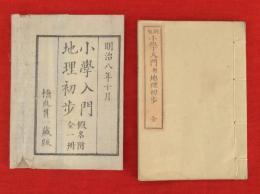 明治八年十月
小學入門
地理初歩
假名附
全一冊
小學入門
地理初歩
全